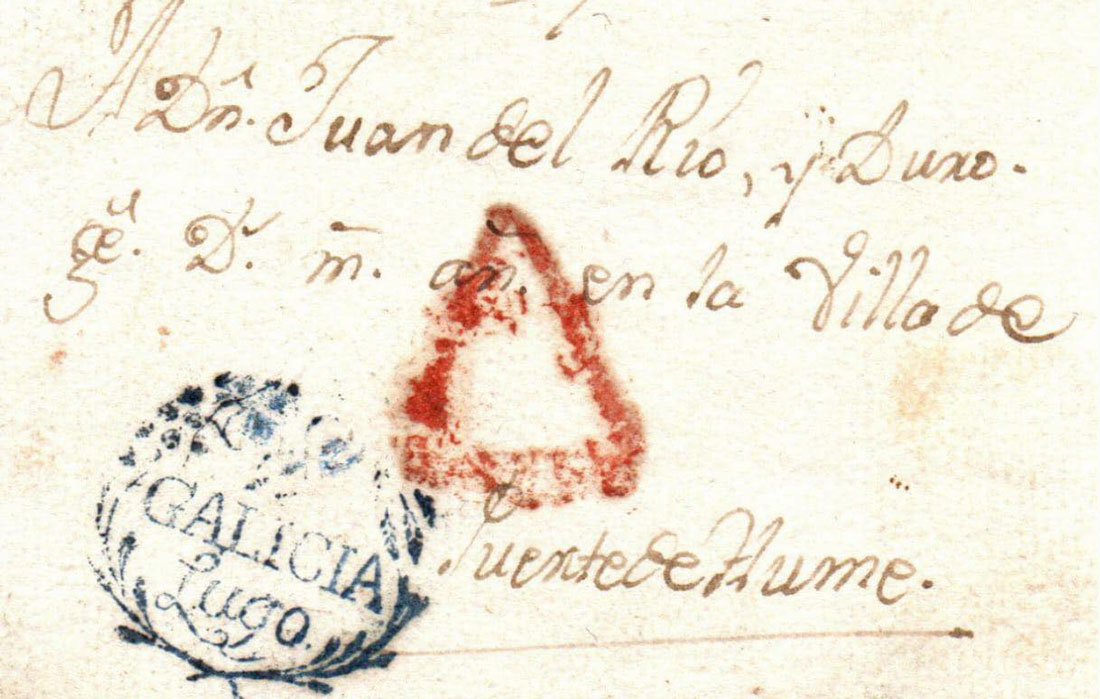 A Dn. Juan del Río, y Duro.
ge. D. m̄. an̄. en la Villa de
Puente de Hume.
GALICIA
Lugo.